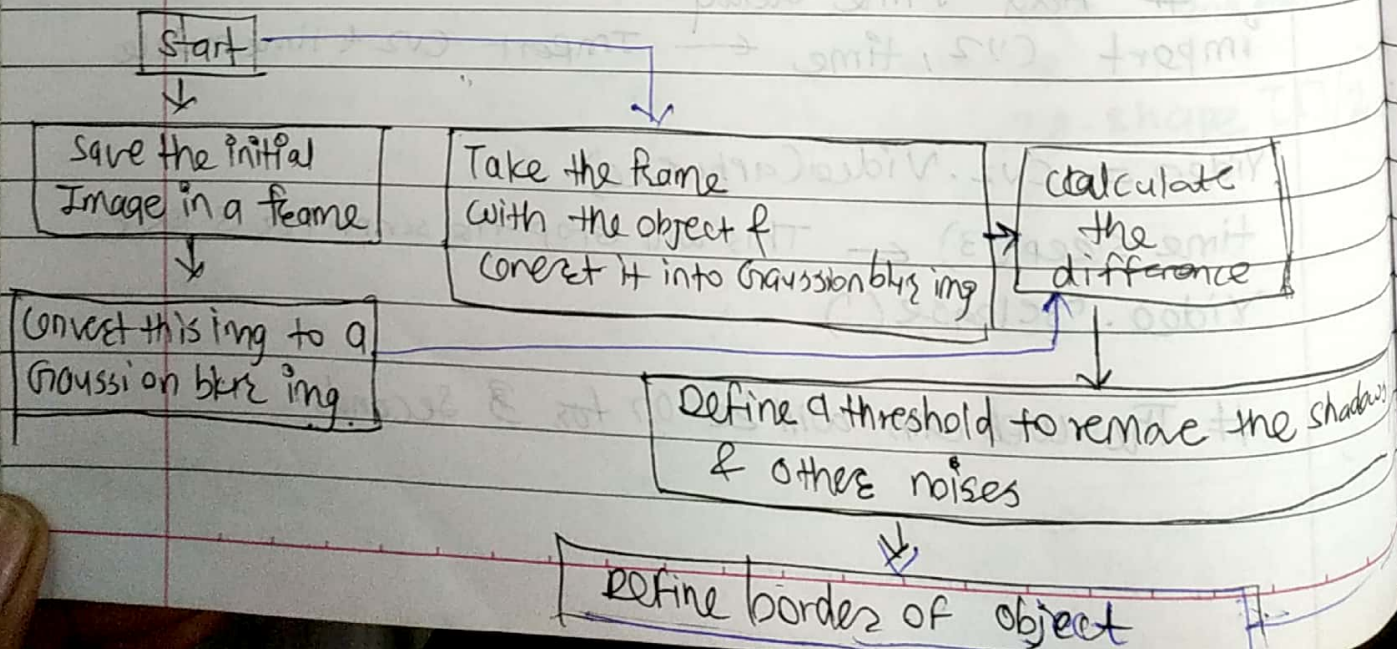 Start
Save the initial
Image in a frame
Convert this img to a
Gaussion blur img.
Take the frame
with the object &
conert it into Gaussion blur img
calculate
the
difference
Define a threshold to remove the shadows
& other noises
Define border of object